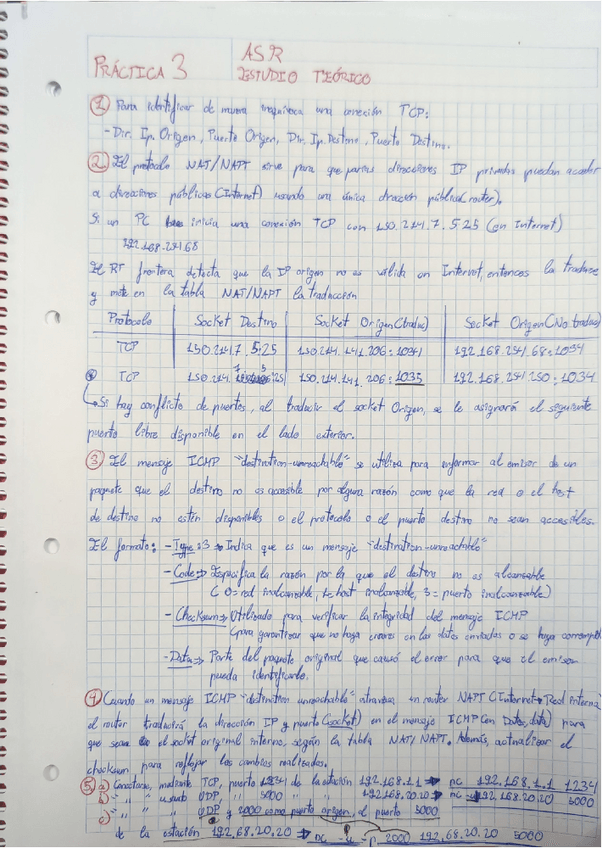 PRÁCTICA 3
ASR
ESTUDIO TEÓRICO
① Para identificar de manera inequívoca una conexión TCP:
- Dir. Ip. Origen, Puerto Origen, Dir. Ip. Destino, Puerto Destino.
② El protocolo NAT/NAPT sirve para que varias direcciones IP privadas puedan acceder
a direcciones públicas (Internet) usando una única dirección pública (router).
Si un PC inicia una conexión TCP con 150.214.7.5:25 (en Internet)
192.168.291.68
El RT frontera detecta que la IP origen no es válida en Internet, entonces la traduce
y mete en la tabla NAT/NAPT la traducción
Protocolo | Socket Destino | Socket Origen (traduc) | Socket Origen (No traduc)
TCP | 150.214.7.5:25 | 150.214.141.206:1034 | 192.168.291.68:1034
* TCP | 150.214.7.5:25 | 150.214.141.206:1035 | 192.168.291.250:1034
→ Si hay conflicto de puertos, al traducir el socket Origen, se le asignará el siguiente
puerto libre disponible en el lado exterior.
③ El mensaje ICMP "destination-unreachable" se utiliza para informar al emisor de un
paquete que el destino no es accesible por alguna razón como que la red o el host
de destino no estén disponibles o el protocolo o el puerto destino no sean accesibles.
El formato: - Type: 3 → Indica que es un mensaje "destination-unreachable"
- Code → Especifica la razón por la que el destino no es alcanzable
(0=red inalcanzable, 1=host inalcanzable, 3=puerto inalcanzable)
- Checksum → Utilizado para verificar la integridad del mensaje ICMP
(para garantizar que no haya errores en los datos enviados o se haya
- Data → Parte del paquete original que causó el error para que el emisor
pueda identificarlo.
④ Cuando un mensaje ICMP "destination unreachable" atraviesa un router NAPT (Internet → Red interna)
el router traducirá la dirección IP y puerto (socket) en el mensaje ICMP (en Data) para
que sea el socket original interno, según la tabla NAT/NAPT. Además, actualizar el
checksum para reflejar los cambios realizados.
⑤ a) Conectarse, mediante TCP, puerto 1234 de la estación 192.168.1.1 → nc 192.168.1.1 1234
b) " " usando UDP, " 5000 " 192.168.20.20 → nc -u 192.168.20.20 5000
c) " " " UDP y 2000 como puerto origen, al puerto 5000
de la estación 192.68.20.20 → nc -u -p 2000 192.68.20.20 5000